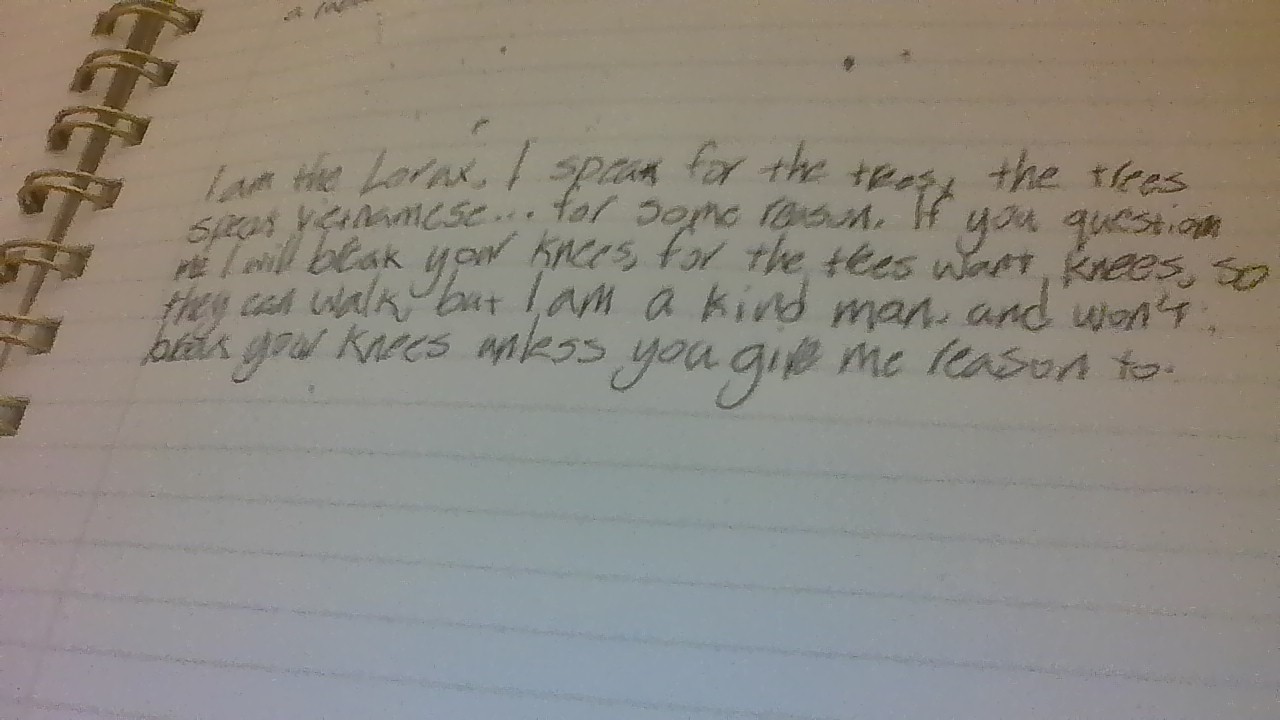 I am the Lorax. I speak for the trees, the trees
speak vietnamese... for some reason. If you question
me I will break your knees, for the trees want knees, so
they can walk, but I am a kind man. and won't
break your knees unless you give me reason to.